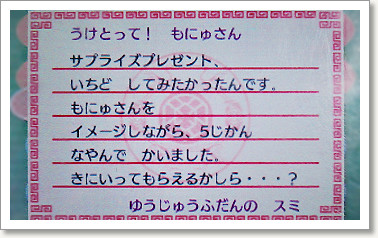 うけとって！　もにゅさん
サプライズプレゼント、
いちど　してみたかったんです。
もにゅさんを
イメージしながら、5じかん
なやんで　かいました。
きにいってもらえるかしら・・・？
ゆうじゅうふだんの　スミ